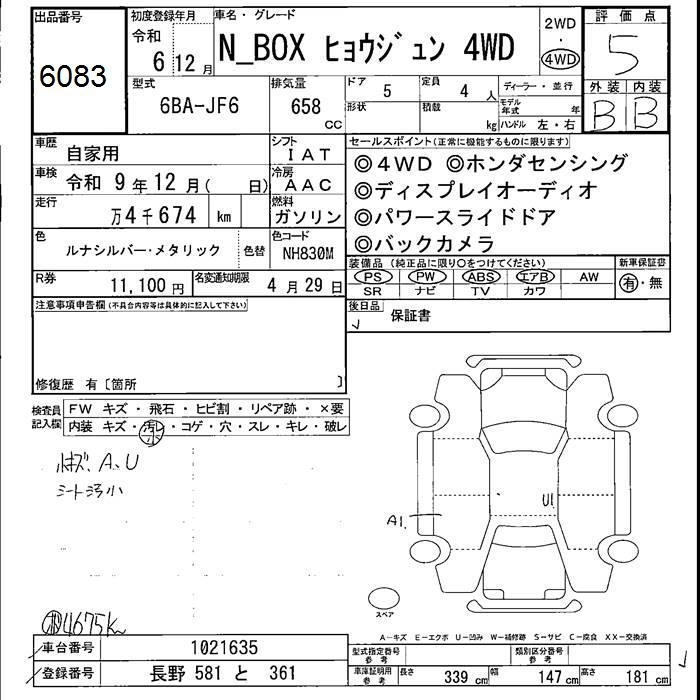 出品番号
6083
初度登録年月
令和
6 12 月
車名・グレード
N_BOX ヒョウジュン 4WD
2WD
・
4WD
評価点
5
外装 内装
B B
型式
6BA-JF6
排気量
658
CC
ドア
5
定員
4 人
形状
積載
kg
ディーラー・並行
モデル年式 年
ハンドル 左・右
車歴
自家用
シフト
IAT
車検
令和 9年12月( 日)
冷房
AAC
走行
万4千674 km
燃料
ガソリン
色
ルナシルバー・メタリック
色替
色コード
NH830M
R券
11,100 円
名変通知期限
4 月 29 日
セールスポイント(正常に機能するものに限ります)
◎4WD ◎ホンダセンシング
◎ディスプレイオーディオ
◎パワースライドドア
◎バックカメラ
装備品 (純正品に限り○をつけてください)
PS PW ABS エアB AW
SR ナビ TV カワ
新車保証書
有・無
後日品
保証書
注意事項申告欄(不具合内容等は具体的に記入して下さい)
修復歴 有〔箇所 〕
検査員記入欄
FW キズ・飛石・ヒビ割・リペア跡・×要
内装 キズ・汚レ・コゲ・穴・スレ・キレ・破レ
キズ、A、U
シート汚小
4675K
U1
A1
スペア
A-キズ E-エクボ U-凹み W-補修跡 S-サビ C-腐食 XX-交換済
車台番号
1021635
登録番号
長野 581 と 361
型式指定番号
参考
類別区分番号
参考
車庫証明用
参考
長さ 339 cm 幅 147 cm 高さ 181 cm